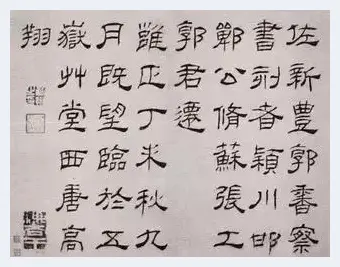 佐新豐郭香察
書刻者潁川邯
鄲公脩蘇張工
郭君遷
雝正丁未秋九
月既望臨於五
嶽艸堂西唐高
翔